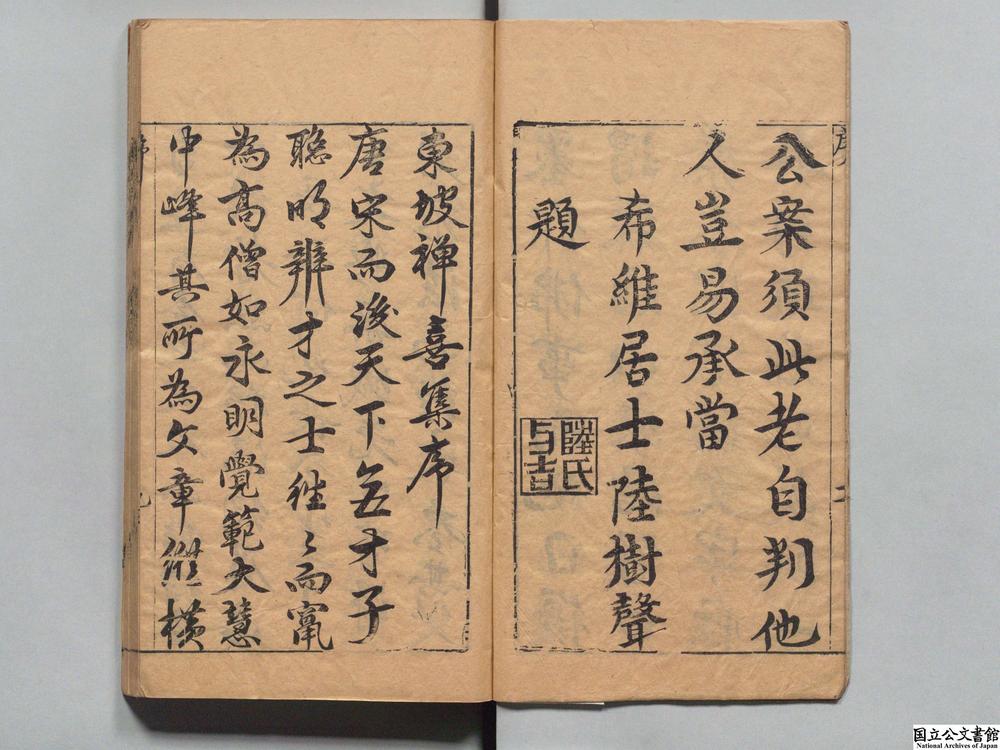 公案須此老自判他
人豈易承當
希維居士陸樹聲
題
陸氏
与吉
東坡禅喜集序
唐宋而後天下無才子
聡明辨才之士徃〻而竄
為高僧如永明覺範大慧
中峰其所為文章縱横
国立公文書館
National Archives of Japan